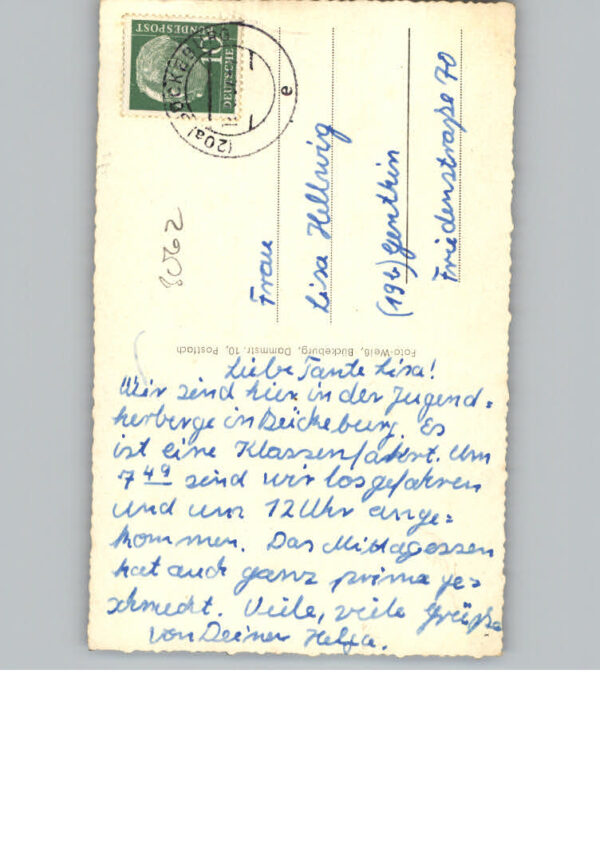 DEUTSCHE
BUNDESPOST
10
(20a) BÜCKEBURG
e
80862
Frau
Lisa Hellwig
(19b) Genthin
Friedenstraße 70
Foto-Weiß, Bückeburg, Dammstr. 10, Postfach
Liebe Tante Lisa!
Wir sind hier in der Jugend=
herberge in Bückeburg. Es
ist eine Klassenfahrt. Um
7 49 sind wir losgefahren
und um 12 Uhr ange=
kommen. Das Mittagessen
hat auch ganz prima ge=
schmeckt. Viele, viele Grüße
von Deiner Helga.